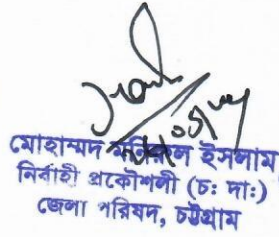 মোহাম্মদ ইসলাম
নির্বাহী প্রকৌশলী (চ: দা:)
জেলা পরিষদ, চট্টগ্রাম